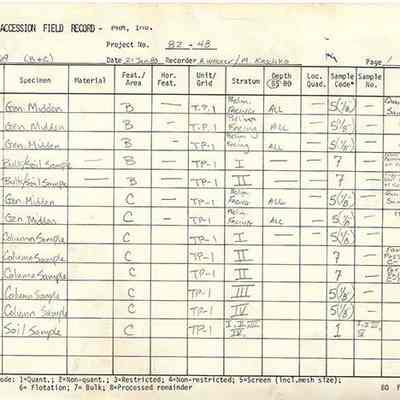 ACCESSION FIELD RECORD - PHRI, Inc.
Project No. 82-48
(B+C) Date 21 Jan 83 Recorder M. Kaschko Page 1
Specimen Material Feat./Area Hor. Feat. Unit/Grid Stratum Depth Loc. Quad. Sample Code* Sample No.
Gen Midden — B — T.P. 1 Facing ALL — 5(1/8) —
Gen Midden B — TP-1 Facing ALL — 5(1/8) —
Gen Midden B — TP-1 Facing ALL — 5(1/8) —
Bulk/Soil Sample — B — TP-1 I — 7 —
Bulk/Soil Sample — B — TP-1 II — 7 —
Gen Midden C — TP-1 Facing ALL — 5(1/8) —
Gen Midden C — TP-1 Facing ALL — 5(1/8) —
Column Sample C TP-1 I — 5(1/8) —
Column Sample C TP-1 II — 7 —
Column Sample C TP-1 II — 7 —
Column Sample C TP-1 III 5(1/8) —
Column Sample C TP-1 5(1/8) —
Soil Sample C TP-1 1
ode: 1=Quant.; 2=Non-quant.; 3=Restricted; 4=Non-restricted; 5=Screen (incl.mesh size);
6= Flotation; 7= Bulk; 8=Processed remainder 80 F